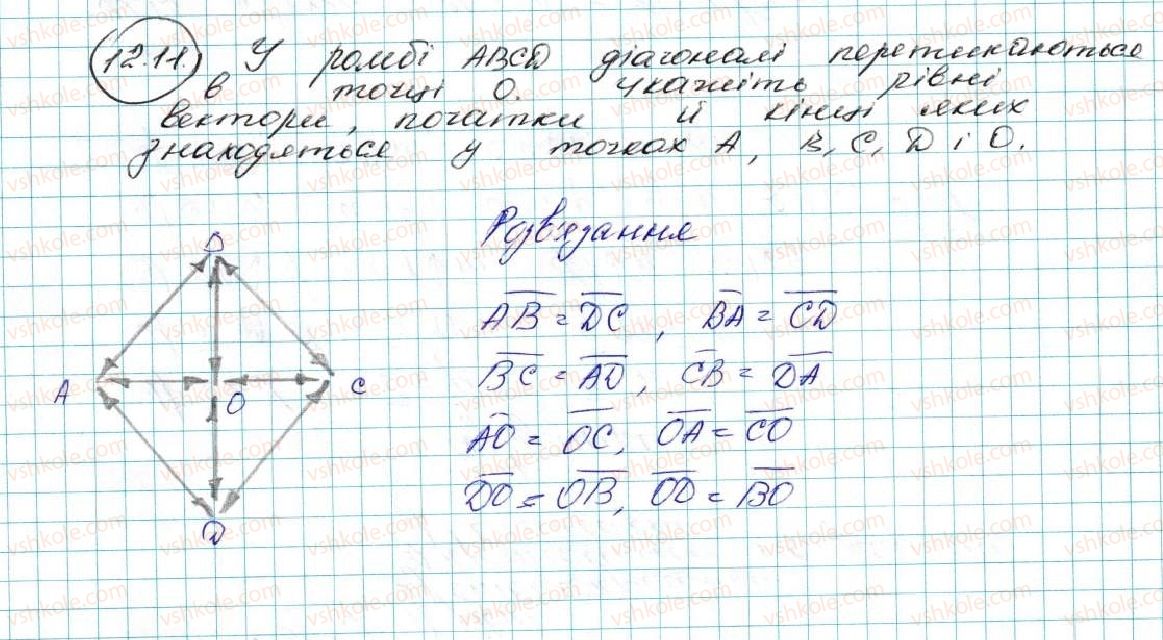 12.11. У ромбі ABCD діагоналі перетинаються
в точці O. Укажіть рівні
вектори, початки й кінці яких
знаходяться у точках A, B, C, D і O.
Розв'язання
B
A
O
C
D
AB = DC, BA = CD
BC = AD, CB = DA
AO = OC, OA = CO
DO = OB, OD = BO
vshkole.com